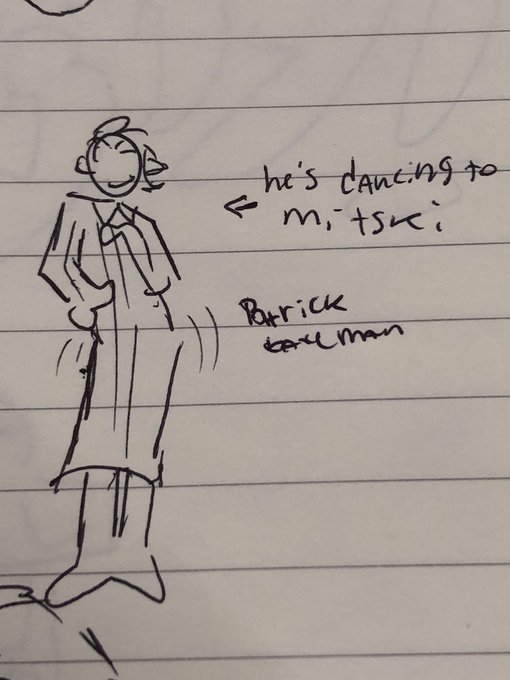 he's dancing to
mitski
Patrick
bateman